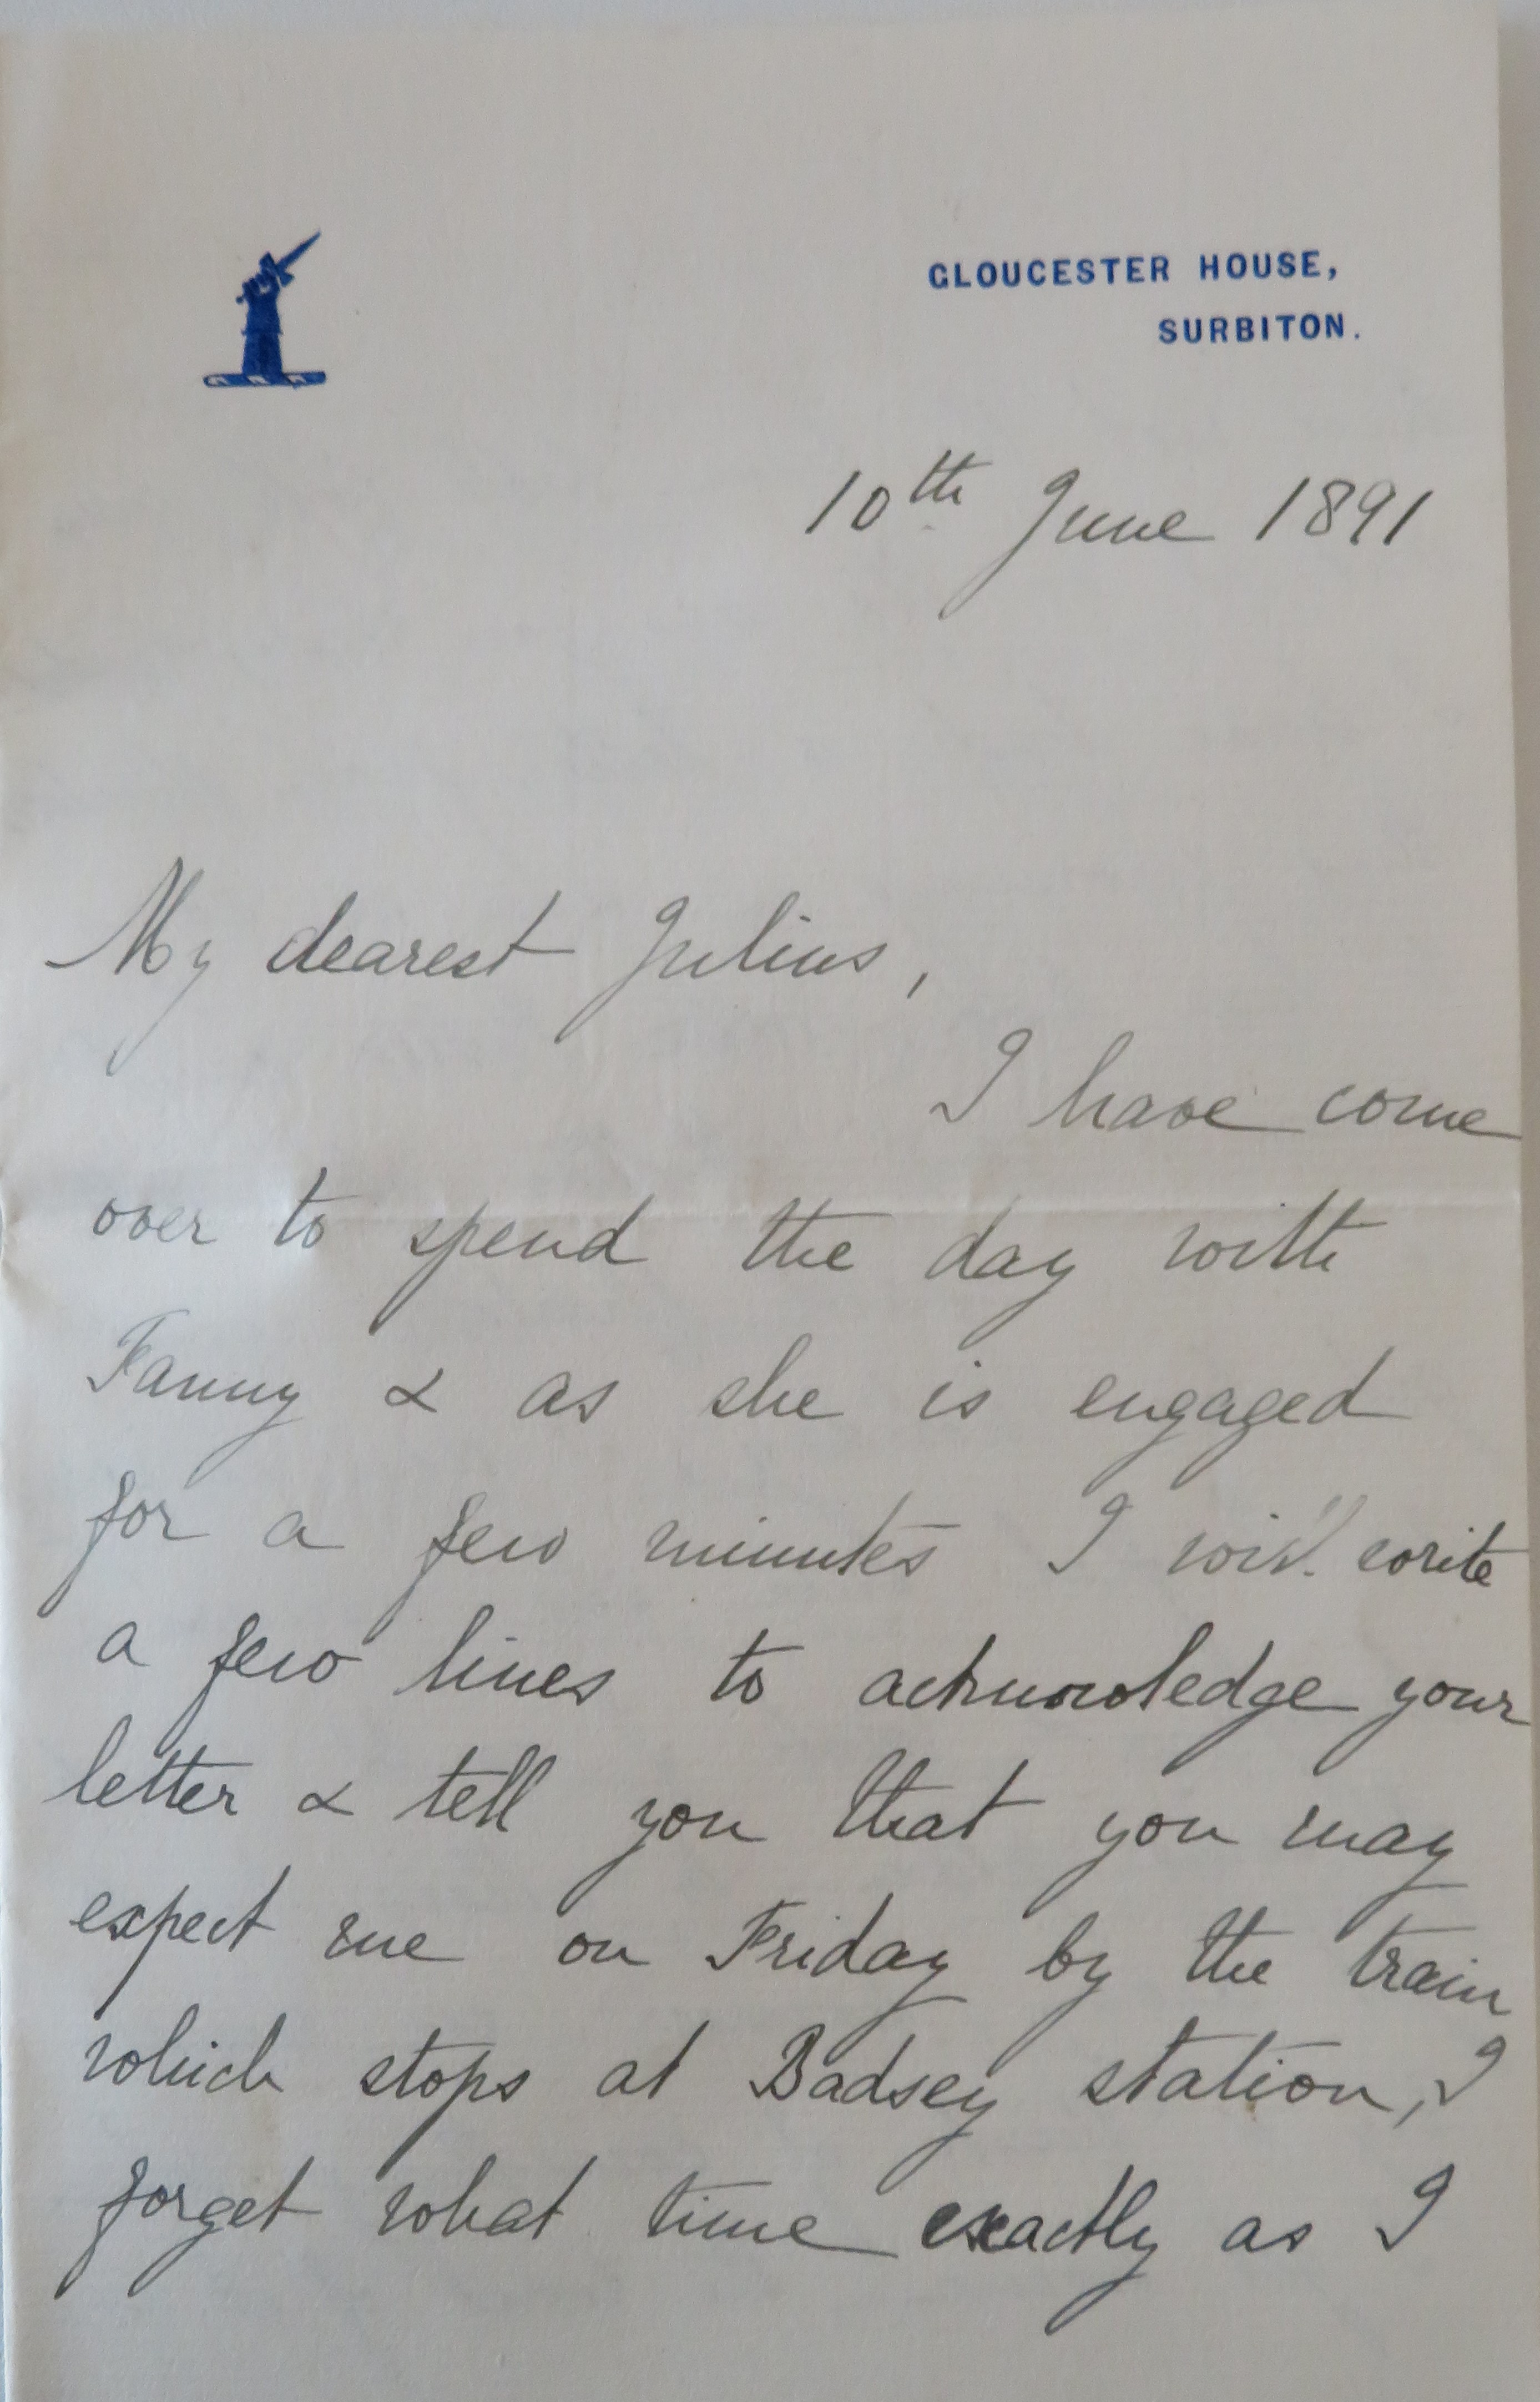 GLOUCESTER HOUSE,
SURBITON.
10th June 1891
My dearest Julius,
I have come
over to spend the day with
Fanny & as she is engaged
for a few minutes I will write
a few lines to acknowledge your
letter & tell you that you may
expect me on Friday by the train
which stops at Badsey station, I
forget what time exactly as I